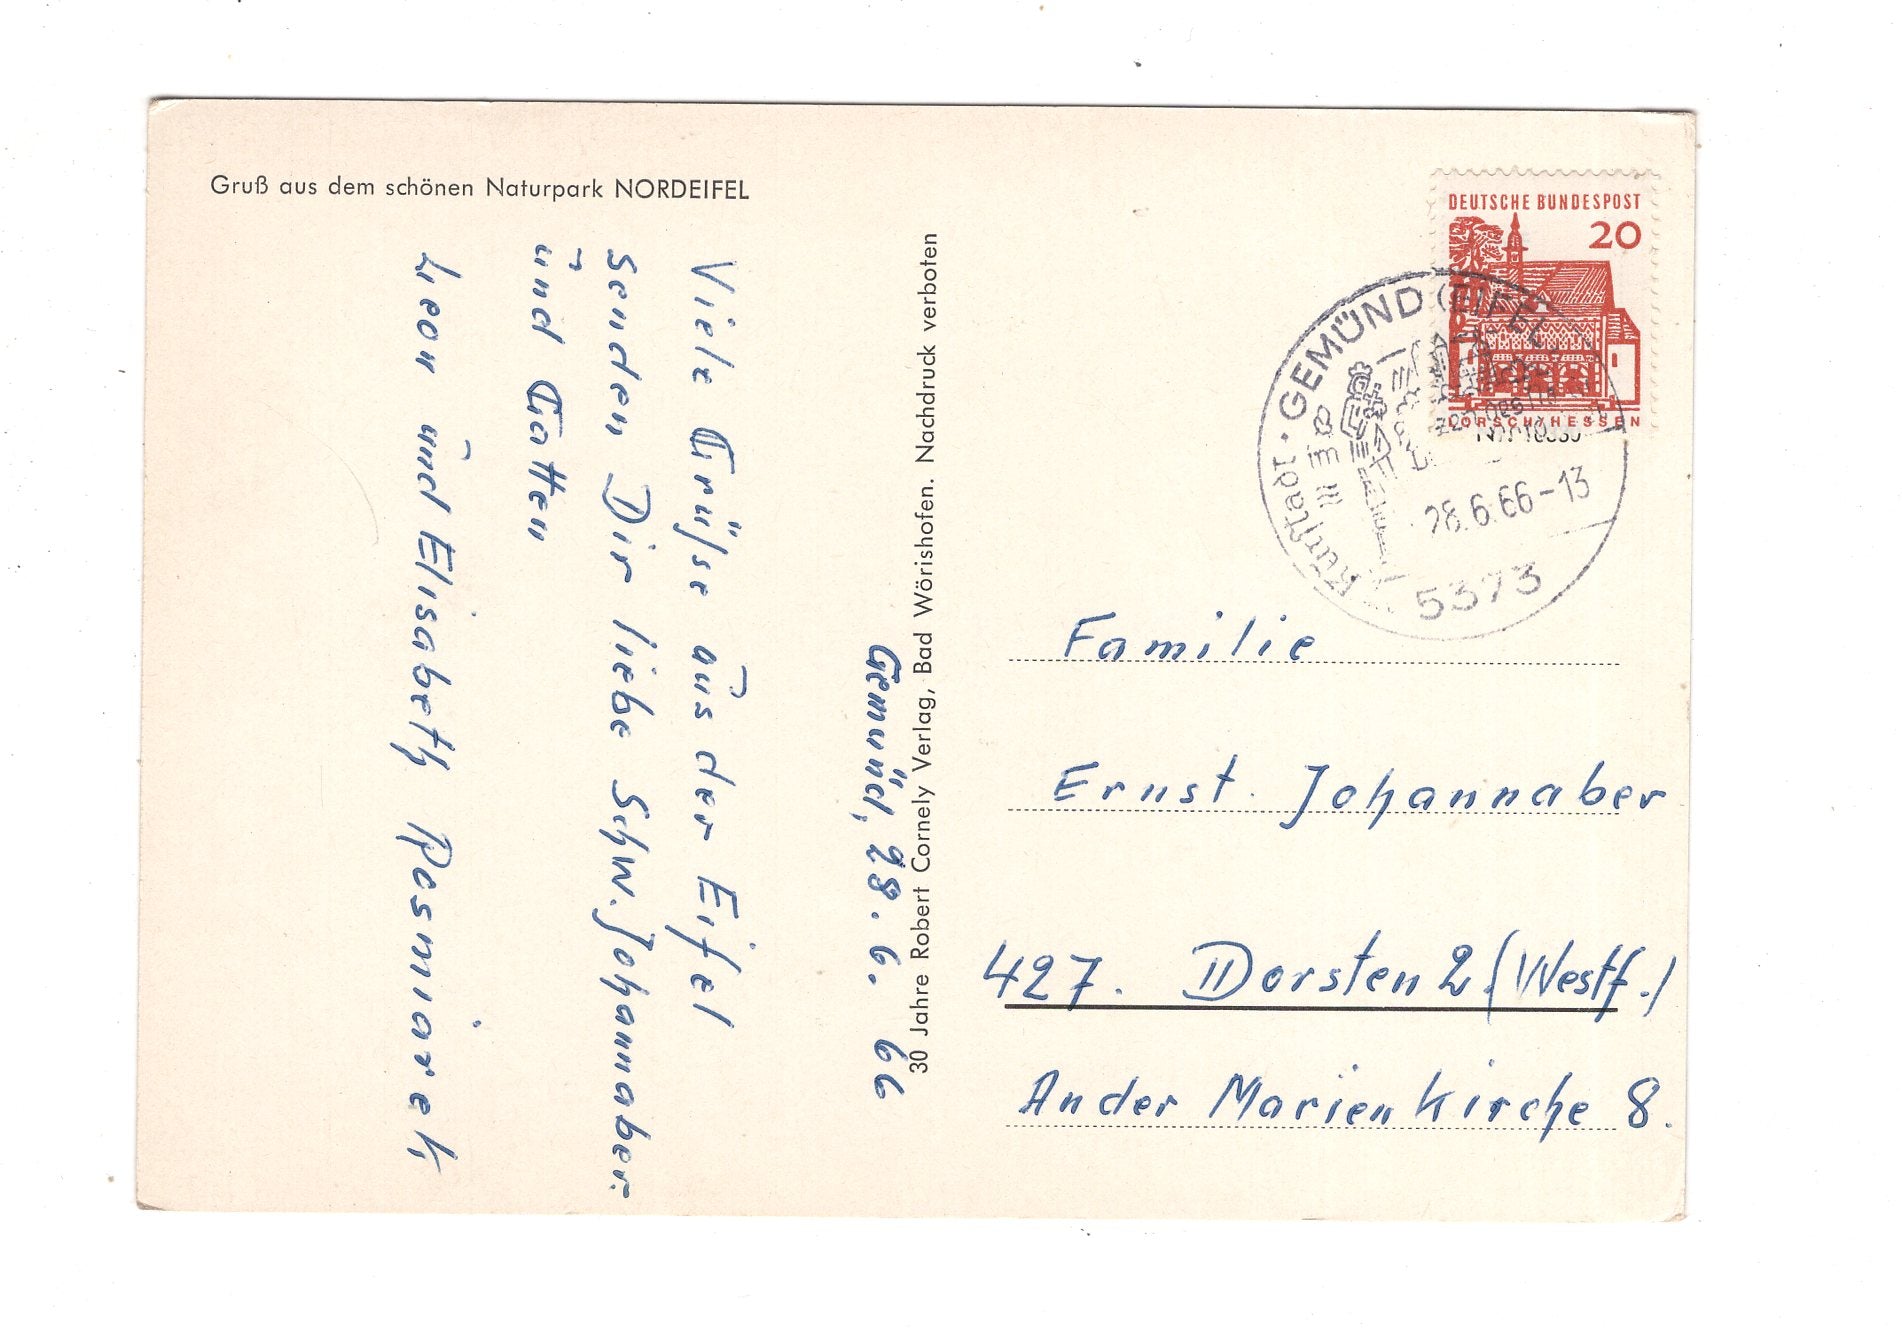 Gruß aus dem schönen Naturpark NORDEIFEL
Gemünd, 28. 6. 66
Viele Grüsse aus der Eifel
senden Dir liebe Schw. Johannaber.
und Gatten
Leon und Elisabeth
30 Jahre Robert Cornely Verlag, Bad Wörishofen. Nachdruck verboten
DEUTSCHE BUNDESPOST
20
LORSCH/HESSEN
GEMÜND (EIFEL)
28.6.66-13
5373
Familie
Ernst Johannaber
427. Dorsten 2 (Westf.)
An der Marienkirche 8.